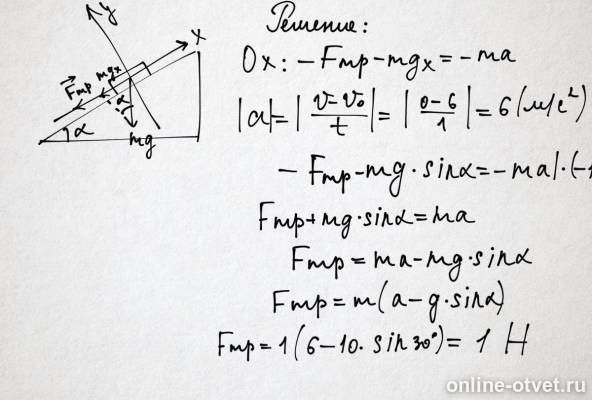 Решение:
y
x
Fтр mgx
α
α
mg
Ox: -Fтр-mgx=-ma
|a|=|v-v₀/t|=|0-6/1|=6(м/с²)
-Fтр-mg·sinα=-ma|·(-1
Fтр+mg·sinα=ma
Fтр=ma-mg·sinα
Fтр=m(a-g·sinα)
Fтр=1(6-10·sin30°)=1 Н
online-otvet.ru